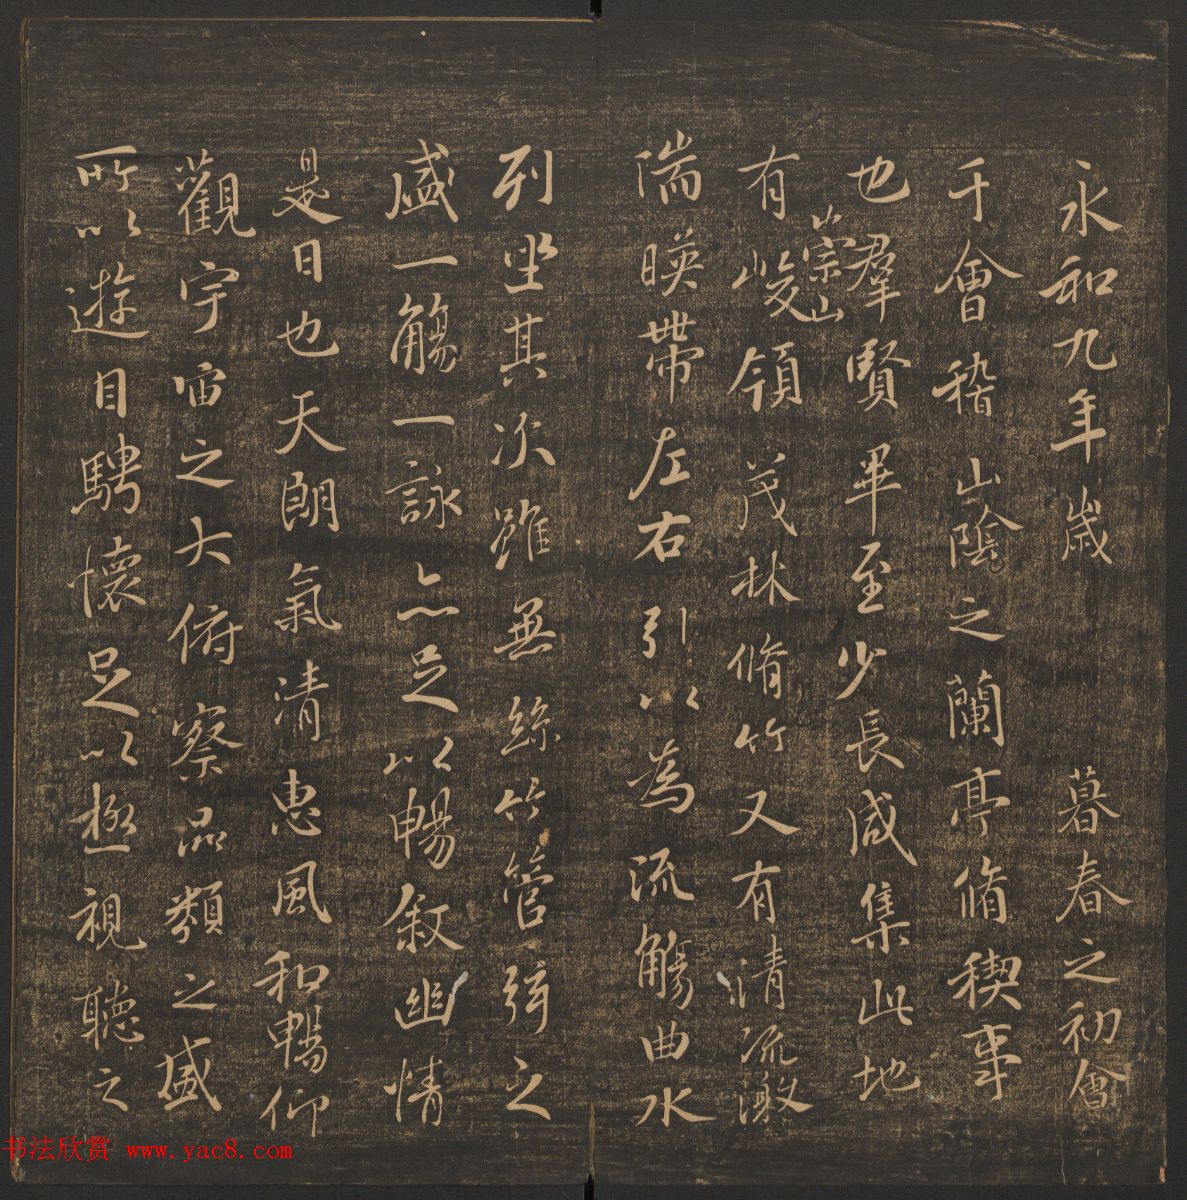 永和九年歲 暮春之初會
于會稽山陰之蘭亭脩稧事
也羣賢畢至少長咸集此地
有崇山峻領茂林脩竹又有清流激
湍暎帶左右引以為流觴曲水
列坐其次雖無絲竹管弦之
盛一觴一詠亦足以暢叙幽情
是日也天朗氣清惠風和暢仰
觀宇宙之大俯察品類之盛
所以遊目騁懷足以極視聽之
书法欣赏 www.yac8.com